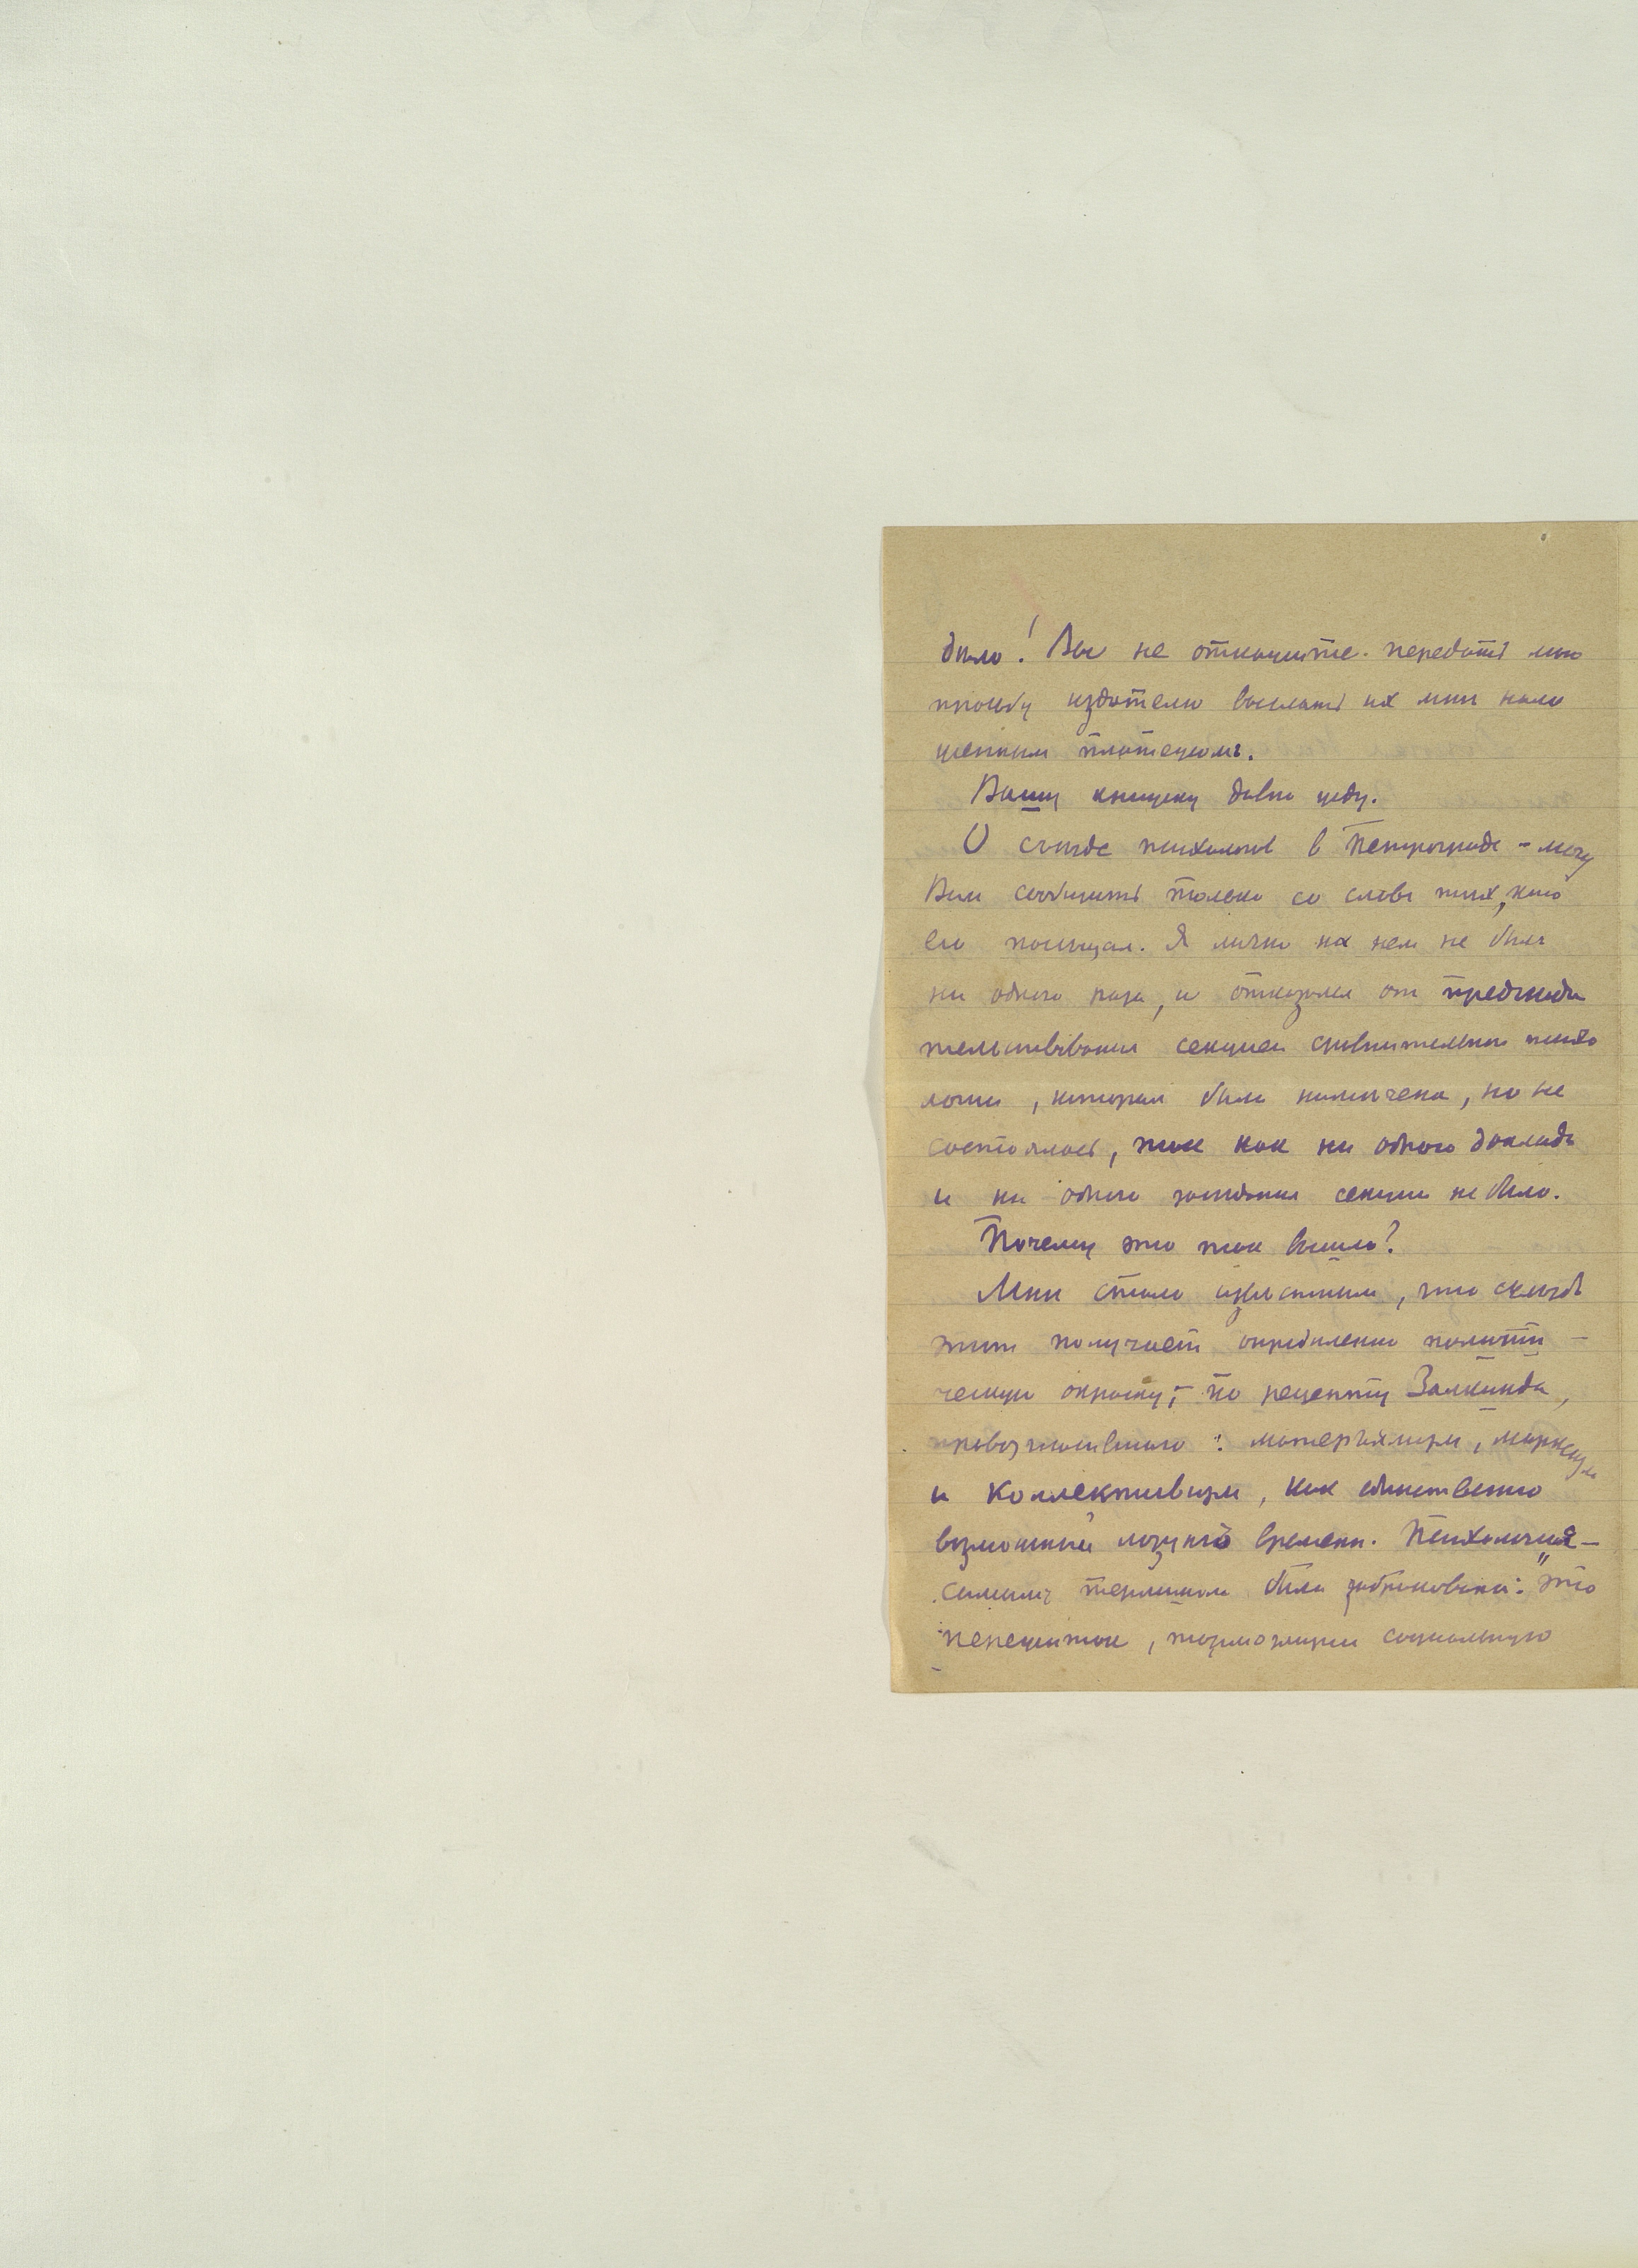 было! Вы не откажите передать мою
просьбу издателю выслать их мне нало
женным платежомъ.
Вашу книжку давно жду.
О съезде психологов в Петрограде – могу
Вам сообщить только со словъ тех, кто
его посещал. Я лично на нем не былъ
ни одного раза, и отказался от председа
тельствования секцией сравнительной психо
логии, которая была намечена, но не
состоялась, так как ни одного доклада
и ни одного заседания секции не было.
Почему это так вышло?
Мне стало известным, что съезд
этот получает определенно полити –
ческую окраску, – по рецепту Залкинда,
провозгласившего: материализм, марксизм
и коллективизм, как единственно
возможный лозунгъ времени. Психология –
самымъ термином была забракована: "это
пережиток, тормозящий социальную